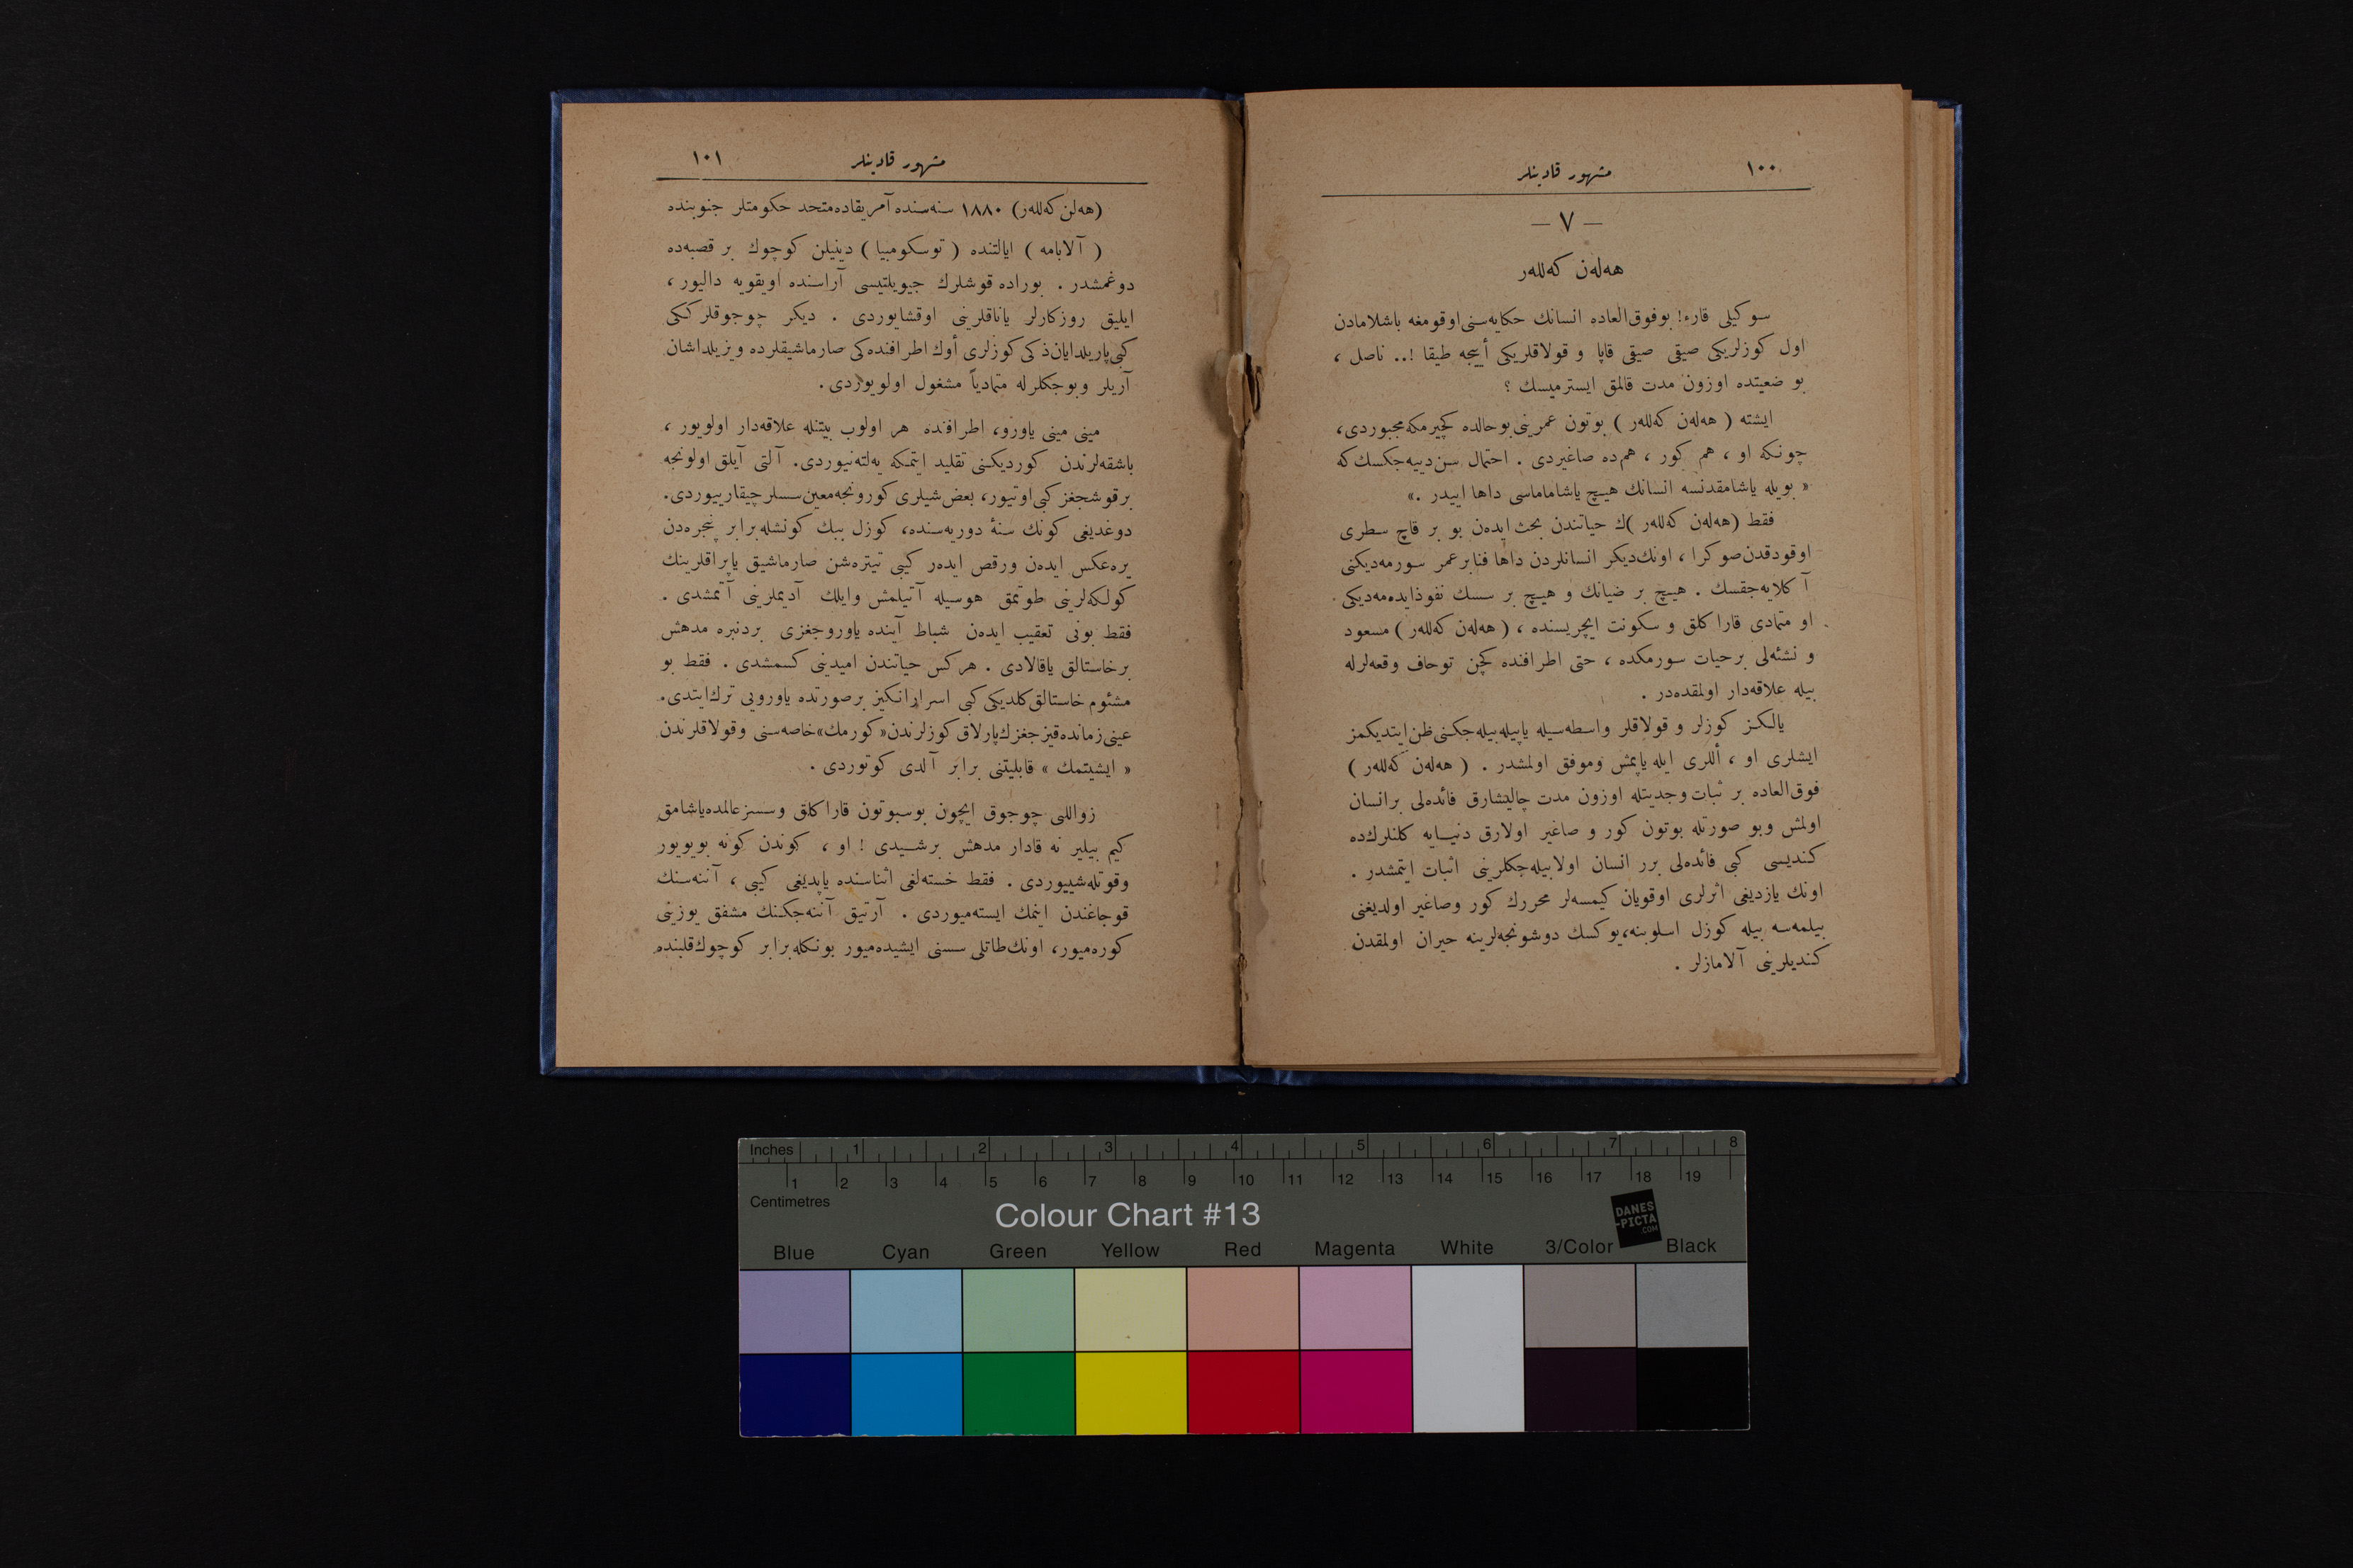 ١٠٠ مشهور قادینلر
— ٧ —
هه‌له‌ن كه‌لله‌ر
سوكیلی قارء! بوفوق‌العاده انسانك حكایه‌سنی‌اوقومغه باشلامادن
اول كوزلریكی صیقی صیقی قاپا و قولاقلریكی أییجه طیقا !.. ناصل ،
بو ضعیتده اوزون مدت قالمق ایسترمیسك ؟
ایشته ( هه‌له‌ن كه‌لله‌ر ) بوتون عمرینی‌بوحالده كچیرمكه‌مجبوردی،
چونكه او ، هم كور ، هم‌ده صاغیردی . احتمال سن‌دییه‌جكسك‌كه
« بویله یاشامقدنسه انسانك هیچ یاشاماماسی داها اییدر .»
فقط (هه‌له‌ن كه‌لله‌ر )ك حیاتندن بحث ایده‌ن بو بر قاچ سطری
اوقودقدن‌صوكرا ، اونك‌دیكر انسانلردن داها فنابرعمر سورمه‌دیكنی
آ كلایه‌جقسك . هیچ بر ضیانك و هیچ بر سسك نفوذایده‌مه‌دیكی
او متمادی قارا كلق و سكونت ایچریسنده ، ( هه‌له‌ن كه‌لله‌ر ) مسعود
و نشئه‌لی برحیات سورمكده ، حتی اطرافنده كچن توحاف وقعه‌لرله
بیله علاقه‌دار اولمقده‌در .
یالكز كوزلر و قولاقلر واسطه‌سیله یاپیله‌بیله‌جكنی‌ظن‌ایتدیكمز
ایشلری او ، أللری ایله یاپمش وموفق اولمشدر . ( هه‌له‌ن كه‌لله‌ر )
فوق‌العاده بر ثبات وجدیتله اوزون مدت چالیشارق فائده‌لی برانسان
اولمش وبو صورتله بوتون كور و صاغیر اولارق دنیایه كلنلرك‌ده
كندیسی كبی فائده‌لی برر انسان اولابیله‌جكلرینی اثبات ایتمشدر .
اونك یازدیغی اثرلری اوقویان كیمسه‌لر محررك كور وصاغیر اولدیغنی
بیلمه‌سه بیله كوزل اسلوبنه،یوكسك دوشونجه‌لرینه حیران اولمقدن
كندیلرینی آلامازلر .
مشهور قادینلر ١٠١
(هه‌لن كه‌لله‌ر) ١٨٨٠ سنه‌سنده آمریقاده‌متحد حكومتلر جنوبنده
( آلابامه ) ایالتنده ( توسكومبیا ) دینیلن كوچوك بر قصبه‌ده
دوغمشدر . بوراده قوشلرك جیویلتیسی آراسنده اویقویه دالیور ،
ایلیق روزكارلر یاناقلرینی اوقشایوردی . دیكر چوجوقلر ككی
كبی‌پاریلدایان‌ذكی كوزلری أوك اطرافنده‌كی صارماشیقلرده ویزیلداشان
آریلر وبوجكلرله متمادیاً مشغول اولویوردی.
مینی مینی یاورو، اطرافنده هر اولوب بیتنله علاقه‌دار اولویور ،
باشقه‌لرندن كوردیكنی تقلید ایتمكه یه‌لته‌نیوردی. آلتی آیلق اولونجه
برقوشجغز كبی‌اوتیور، بعض‌شیلری كورونجه‌معین‌سسلرچیقارییوردی.
دوغدیغی كونك سنۀ دوریه‌سنده، كوزل ببك كونشله‌برابر پنجره‌دن
یره‌عكس ایده‌ن ورقص ایده‌ر كیبی تیتره‌شن صارماشیق یاپراقلرینك
كولكه‌لرینی طوتمق هوسیله آتیلمش وایلك آدیملرینی آتمشدی .
فقط بونی تعقیب ایده‌ن شباط آینده یاوروجغزی بردنبره مدهش
برخاستالق یاقالادی . هركس حیاتندن امیدینی كسمشدی . فقط بو
مشئوم خاستالق‌كلدیكی كبی اسرارانكیز برصورتده یاورویی ترك‌ایتدی.
عینی‌زمانده‌قیزجغزك‌پارلاق‌كوزلرندن«كورمك»خاصه‌سنی وقولاقلرندن
« ایشیتمك » قابلیتنی برابر آلدی كوتوردی .
زواللی چوجوق ایچون بوسبوتون قاراكلق وسسزعالمده‌یاشامق
كیم بیلیر نه قادار مدهش برشیدی ! او ، كوندن كونه بویویور
وقوتله‌شییوردی . فقط خسته‌لغی اثناسنده یاپدیغی كیبی ، آننه‌سنك
قوجاغندن اینمك ایسته‌میوردی . آرتیق آننه‌جكنك مشفق یوزینی
كوره‌میور، اونك‌طاتلی سسنی ایشیده‌میور بونكله‌برابر كوچوك‌قلبنده
Inches 1 2 3 4 5 6 7 8
1 2 3 4 5 6 7 8 9 10 11 12 13 14 15 16 17 18 19
Centimetres
Colour Chart #13
DANES
-PICTA
.COM
Blue Cyan Green Yellow Red Magenta White 3/Color Black